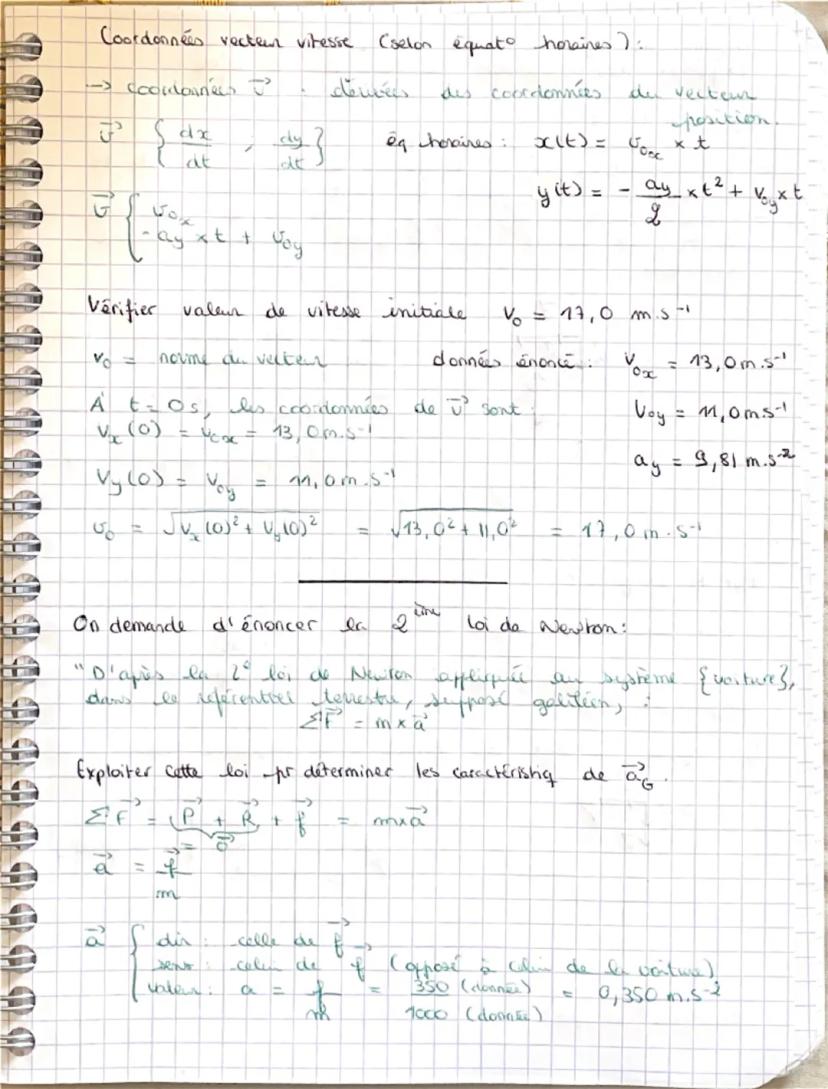 Coordonnées vecteur vitesse (selon équat° horaires) :
→ coordonnées v⃗ : dérivées des coordonnées du vecteur
position.
v⃗ { dx/dt , dy/dt } éq horaires : x(t) = v₀ₓ × t
y(t) = - ay/2 × t² + v₀y × t
v⃗ { v₀ₓ
-ay × t + v₀y
Vérifier valeur de vitesse initiale V₀ = 17,0 m.s⁻¹
v₀ = norme du vecteur données énoncé : V₀ₓ = 13,0 m.s⁻¹
À t = 0s, les coordonnées de v⃗ sont : V₀y = 11,0 m.s⁻¹
Vₓ(0) = V₀ₓ = 13,0 m.s⁻¹
ay = 9,81 m.s⁻²
Vy(0) = V₀y = 11,0 m.s⁻¹
v₀ = √(Vₓ(0)² + Vy(0)²) = √(13,0² + 11,0²) = 17,0 m.s⁻¹
On demande d'énoncer la 2ème loi de Newton :
"D'après la 2° loi de Newton appliquée au système {voiture},
dans le référentiel terrestre, supposé galiléen, :
ΣF⃗ = m × a⃗
Exploiter cette loi pr déterminer les caractéristiq de a⃗G.
ΣF⃗ = P⃗ + R⃗ + f⃗ = m × a⃗
= 0⃗
a⃗ = f⃗/m
a⃗ { dir : celle de f⃗
sens : celui de f⃗ (opposé à celui de la voiture)
valeur : a = f/m = 350 (donnée)/1000 (donnée) = 0,350 m.s⁻²